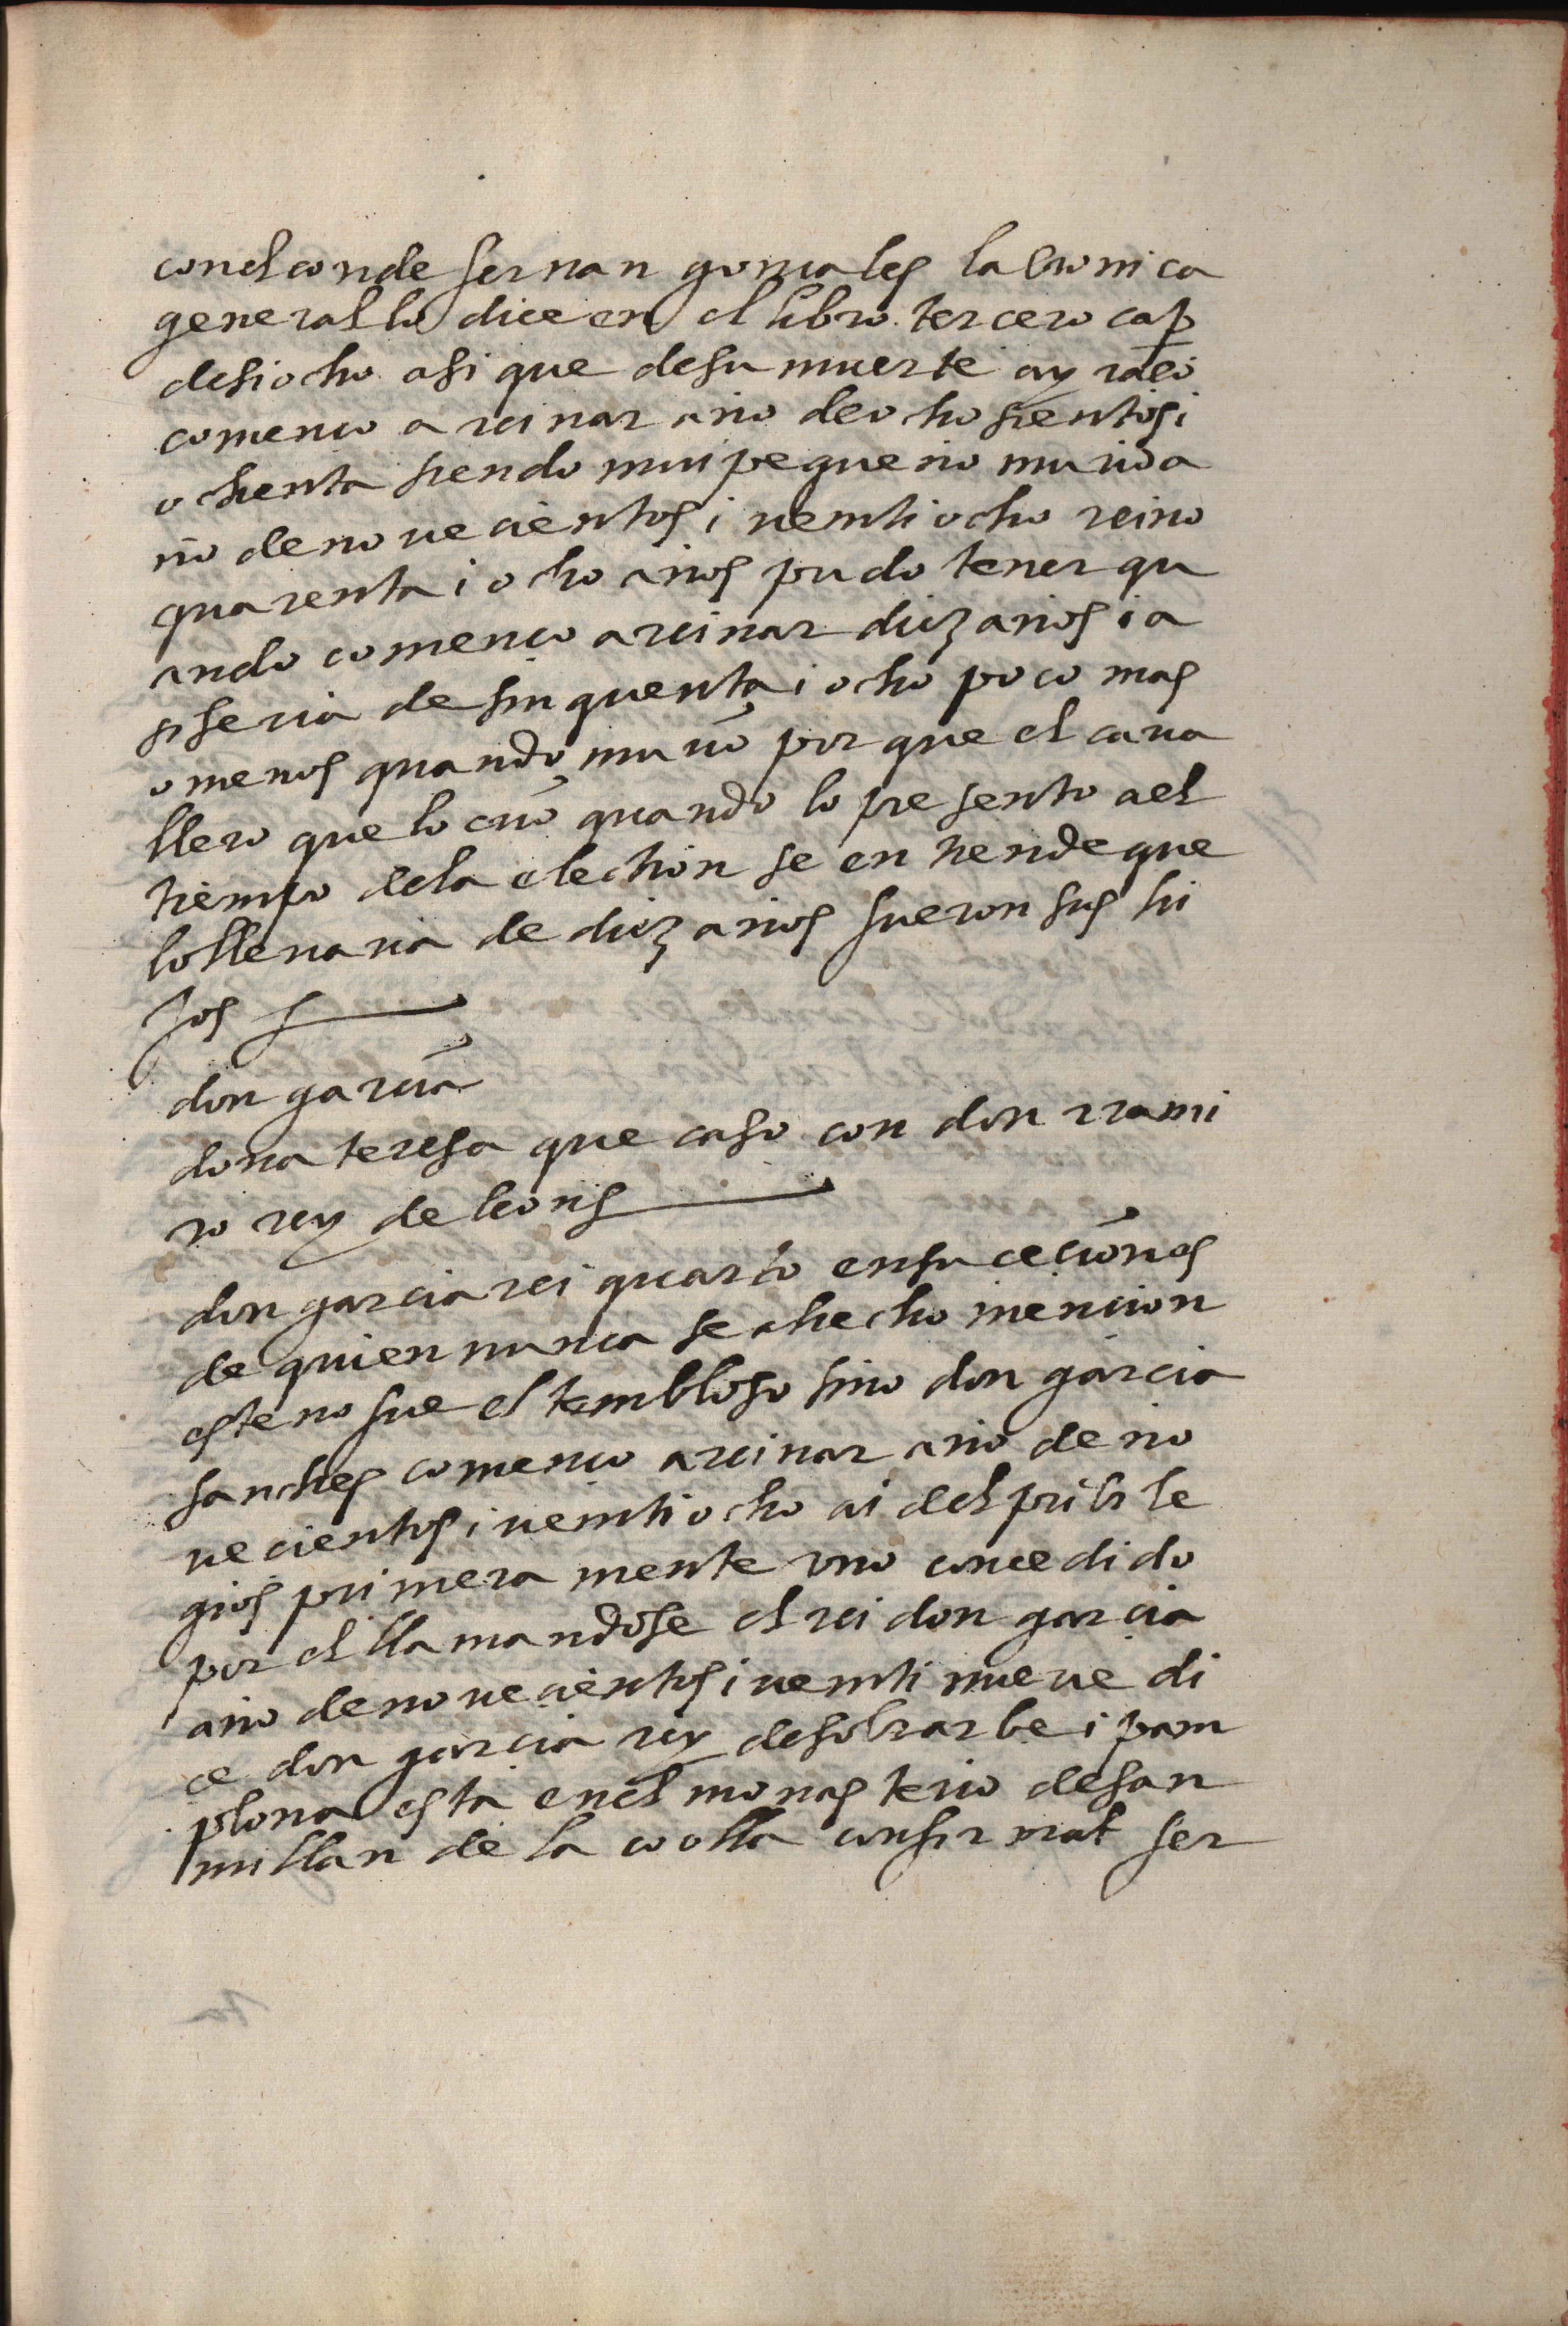 conel conde fernan goncales la cronica
general lo dice en el libro tercero cap
desiocho asi que desu muerte ay
comenco a reinar año deochosientos i
ochenta siendo mui pequeño murio a
ño denovecientos i veintiocho reino
quarenta i ocho años pudo tener qu
ando comenco areinar diez años i a
si seria de sinquenta i ocho poco mas
o menos quando murio por que el cava
llero que lo crio quando lo presento ael
tiempo dela elechion se entiende que
lo llevaria de diez años fueron sus hi
jos
don garcia
doña teresa que caso con don rrami
ro rey de leon
don garcia rei quarto ensu cecciones
de quien nunca se ahecho mencion
este no fue el tembloso sino don garcia
sanches comenco areinar año de no
vecientos i veintiocho ai del pribile
gios primera mente vno concedido
por el llamandose el rei don garcia
año denovecientos i veintinueve di
ce don garcia rey desobrarbe i pam
plona esta enel monasterio desan
millan de la cogolla confirmat fer